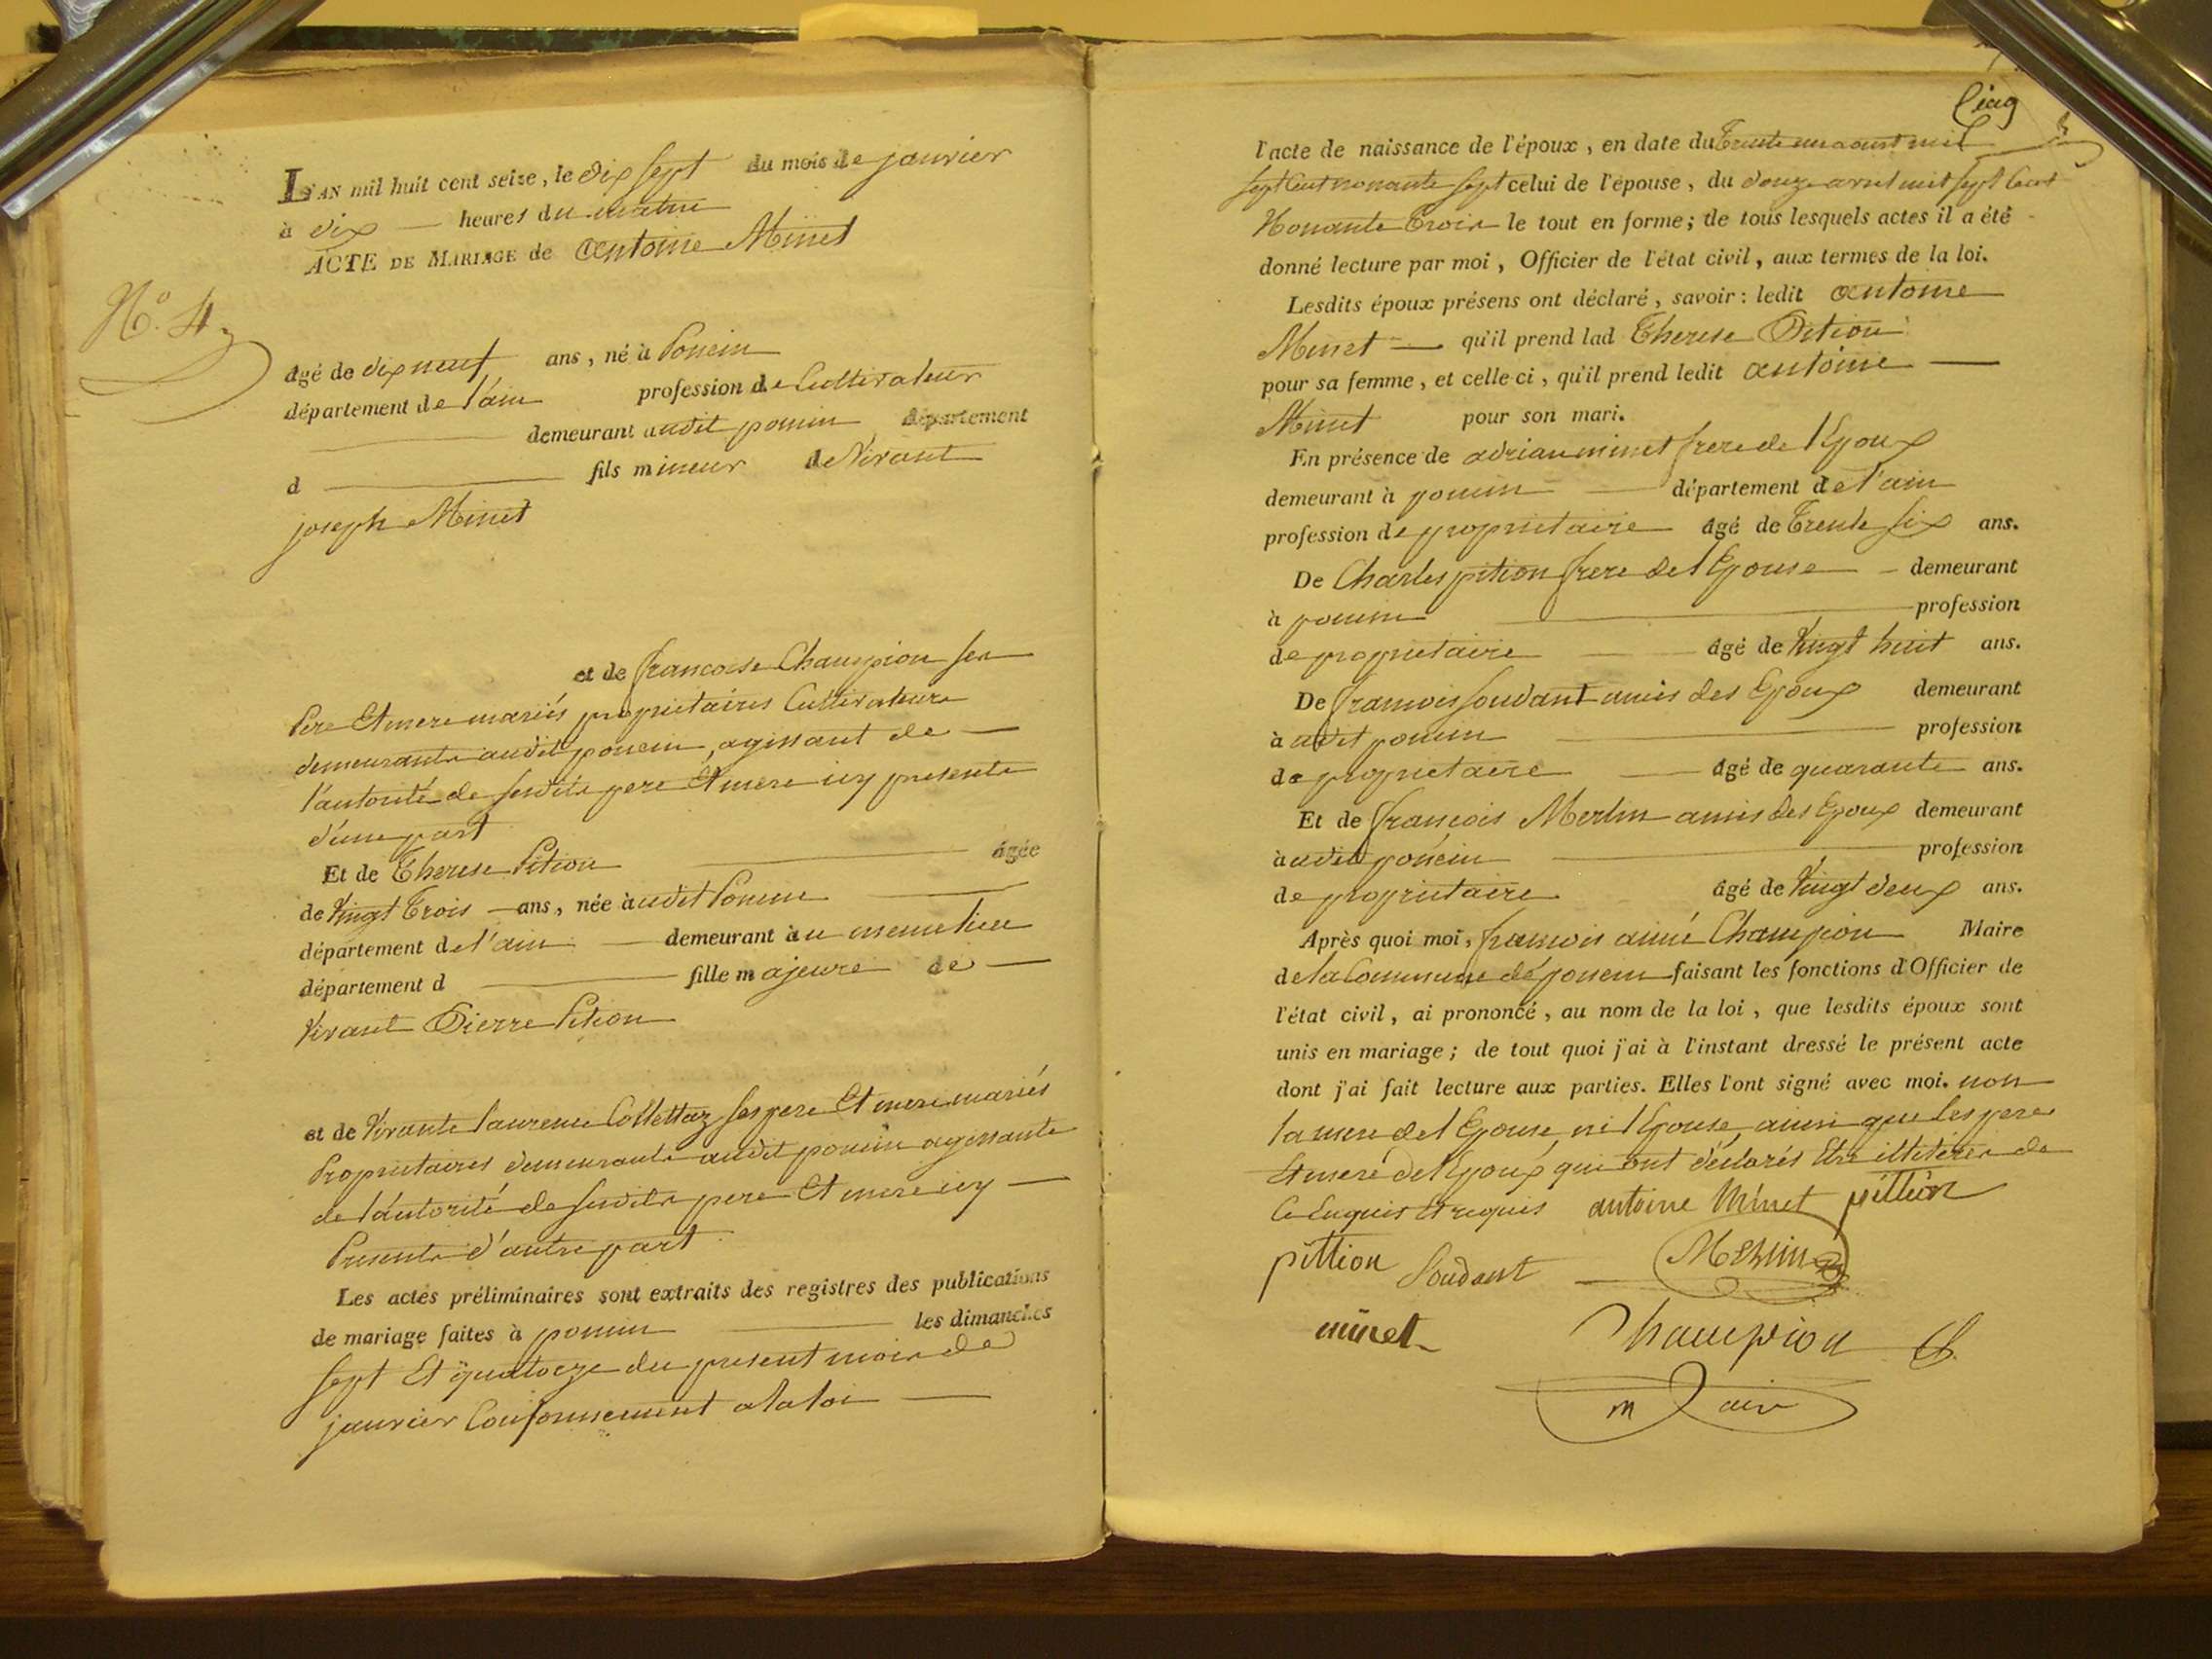 L'AN mil huit cent seize, le dix sept du mois de janvier
à dix heures du matin
ACTE DE MARIAGE de antoine Minet
N.° 4
âgé de dix neuf ans, né à Poncin
département de l'ain profession de Cultivateur
demeurant audit poncin département
d fils mineur de Vivant
joseph Minet
et de francoise Champion ses
Pere Et mere mariés proprietaires Cultivateurs
demeurants audit poncin, agissant de
l'autorité de sesdits pere Et mere icy presents
d'une part
Et de Therese Pition âgée
de Vingt Trois ans, née audit Poncin
département de l'ain demeurant au meme lieu
département d fille majeure de
Vivant Pierre Pition
et de Vivante laurence Collettaz ses pere Et mere mariés
Proprietaires demeurants audit poncin agissante
de l'autorité de sesdits pere Et mere icy
Presents d'autre part
Les actes préliminaires sont extraits des registres des publications
de mariage faites à poncin les dimanches
sept Et quatorze du present mois de
janvier Conformement a la loi
Cinq
l'acte de naissance de l'époux, en date du Trente un aout mil
sept Cent nonante sept celui de l'épouse, du douze avril mil sept Cent
Nonante Trois le tout en forme; de tous lesquels actes il a été
donné lecture par moi, Officier de l'état civil, aux termes de la loi.
Lesdits époux présens ont déclaré, savoir: ledit antoine
Minet qu'il prend lad Therese Pition
pour sa femme, et celle-ci, qu'il prend ledit antoine
Minet pour son mari.
En présence de adrian minet frere de l'Epoux
demeurant à poncin département de l'ain
profession de proprietaire âgé de Trente six ans.
De Charles pition frere de l'Epouse demeurant
à poncin profession
de proprietaire âgé de Vingt huit ans.
De francois soudant amis des Epoux demeurant
à audit poncin profession
de proprietaire âgé de quarante ans.
Et de francois Merlin amis des Epoux demeurant
à audit poncin profession
de proprietaire âgé de Vingt deux ans.
Après quoi moi, francois aimé Champion Maire
de la Commune de poncin faisant les fonctions d'Officier de
l'état civil, ai prononcé, au nom de la loi, que lesdits époux sont
unis en mariage; de tout quoi j'ai à l'instant dressé le présent acte
dont j'ai fait lecture aux parties. Elles l'ont signé avec moi. non
la mere de l'Epouse, ni l'Epouse, ainsi que les pere
Et mere de l'Epoux qui ont déclarés Etre illiterés de
Ce Enquis Et requis antoine Minet pittion
pittion Soudant Merlin
minet Champion
maire